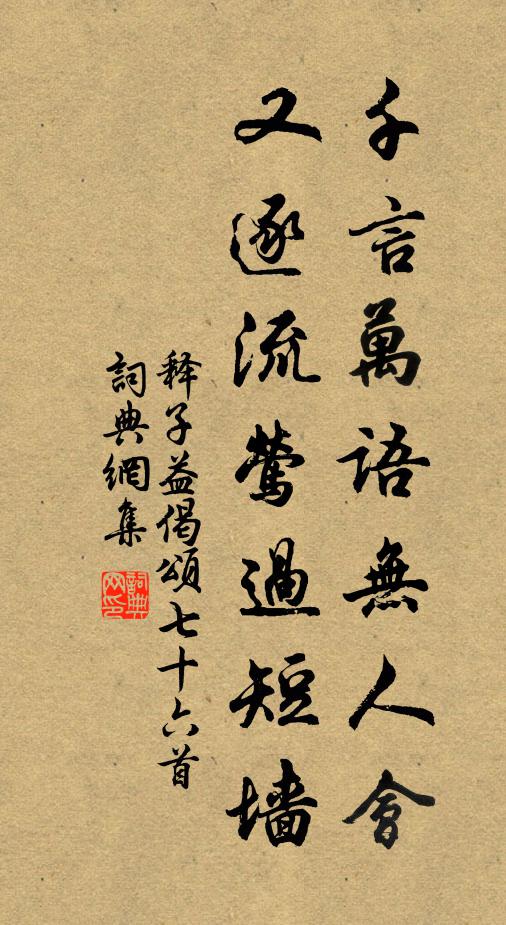 千言萬語無人會
又逐流鶯過短墻
释子益偈頌七十六首
詞典網集
詞典
网印